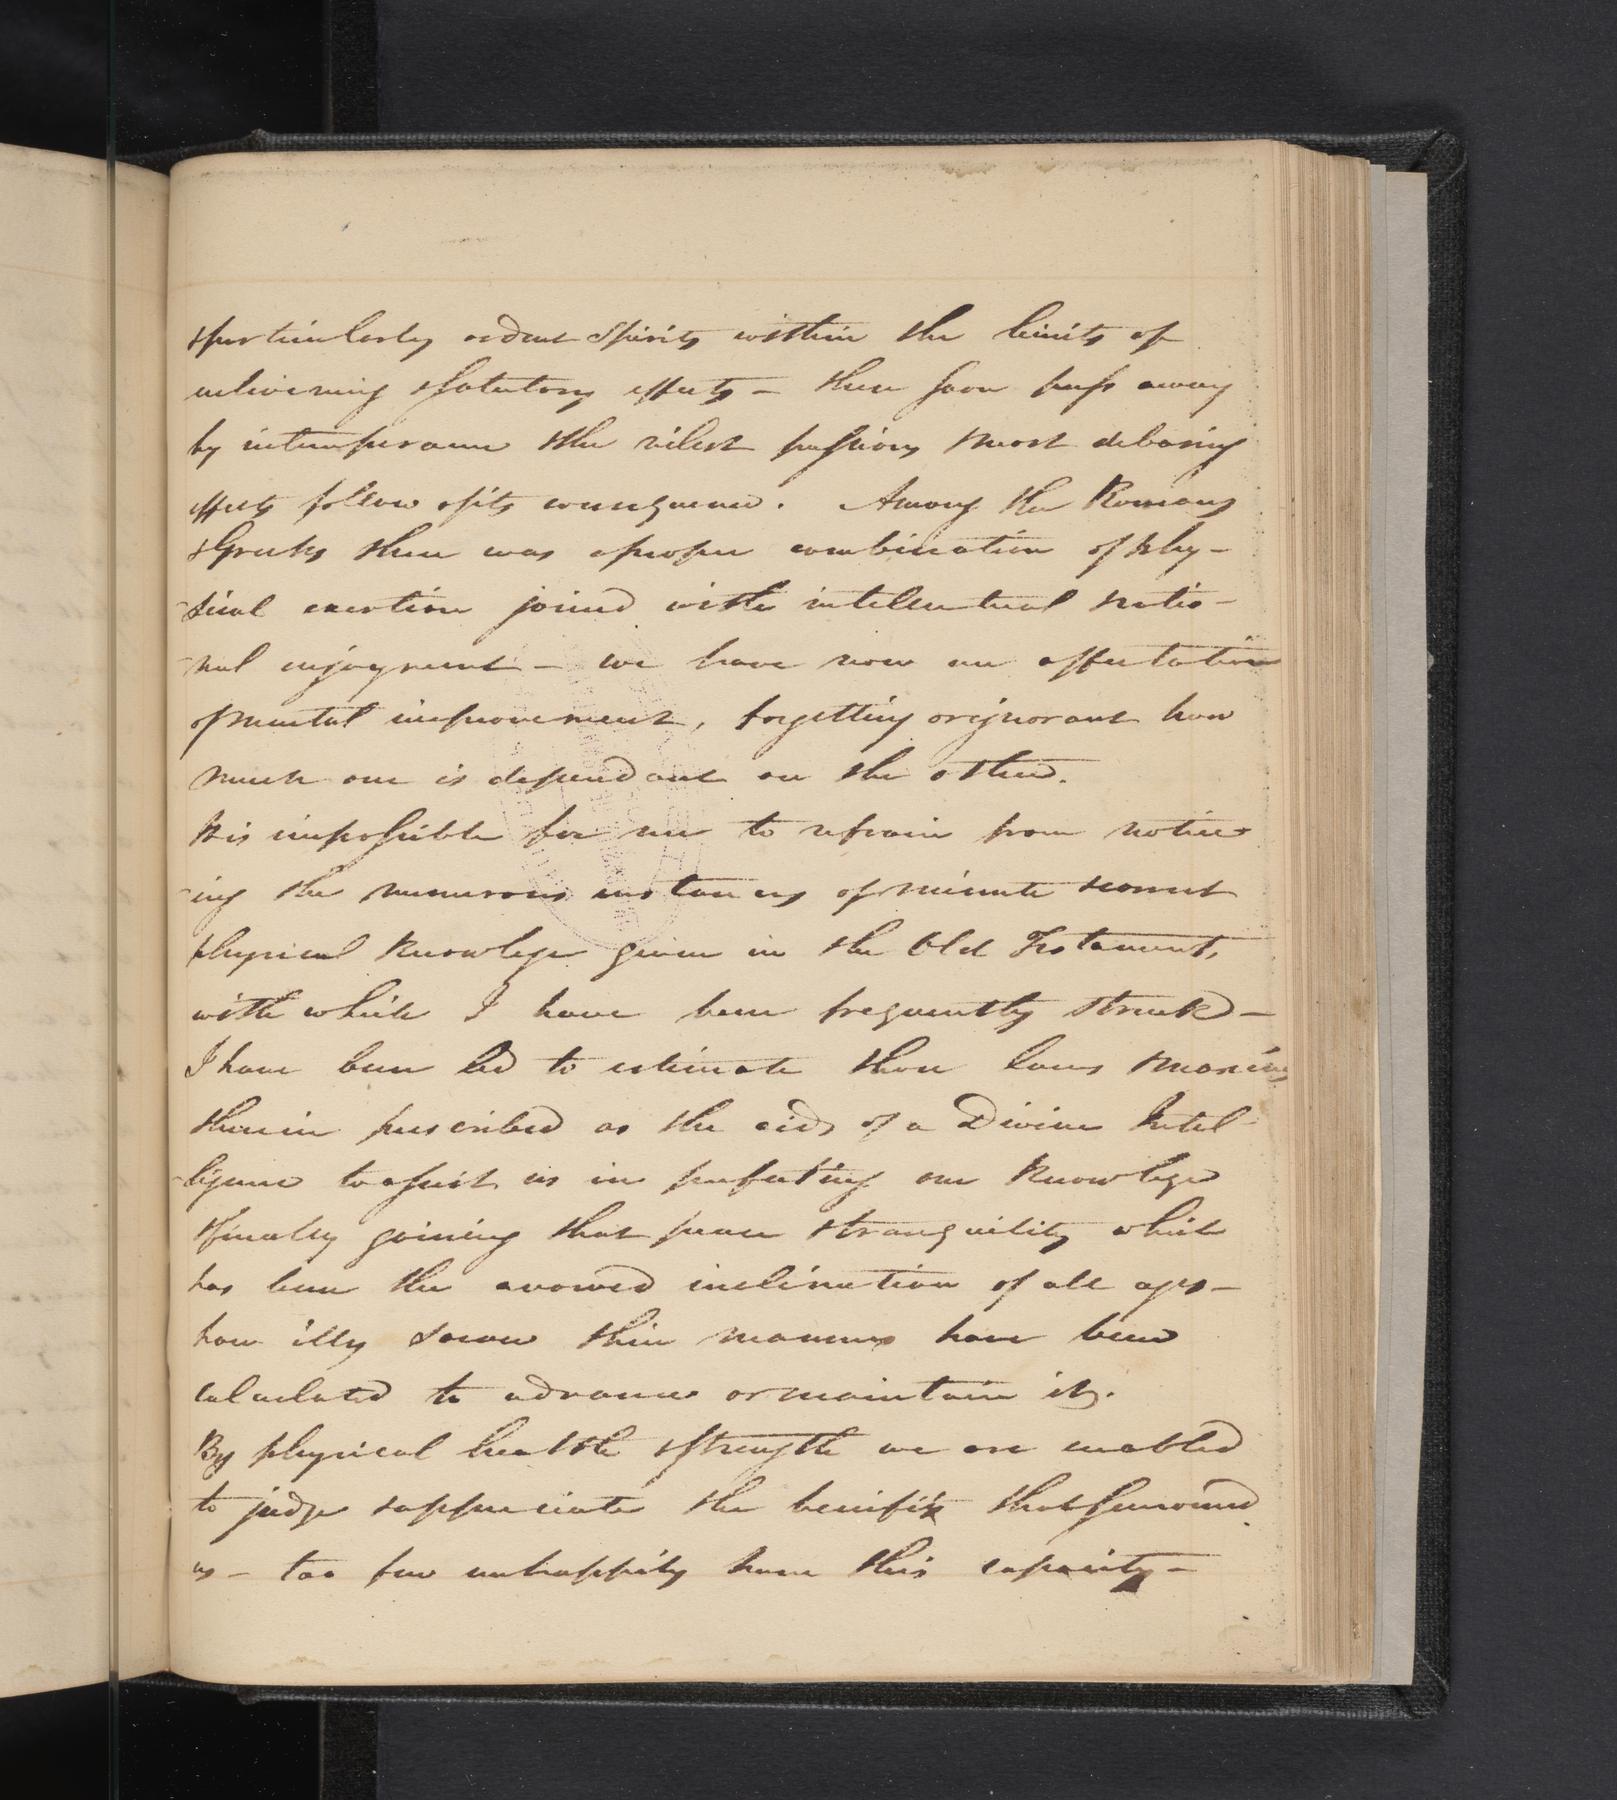 & particularly ardent spirits within the limits of
enlivening & salutory effects – these soon pass away
by intemperance the vilest passions & most debasing
effects follow as its consequence. Among the Romans
& Greeks there was a proper combination of phy-
-sical exertion joined with intellectual & ratio-
-nal enjoyment – we have now an affectation
of mental improvement, forgetting or ignorant how
much one is dependant on the other.
It is impossible for me to refrain from notic-
-ing the numerous instances of minute & correct
physical knowlege given in the Old Testament,
with which I have been frequently struck –
I have been led to estimate those laws & maxims
therein prescribed as the aids of a Divine Intel-
-ligence to assist us in perfecting our knowlege
& finally gaining that peace & tranquility which
has been the avowed inclination of all ages –
how illy some their manners have been
calculated to advance or maintain it.
By physical health & strength we are enabled
to judge & appreciate the benifits that surround
us – too few unhappily have this capacity –